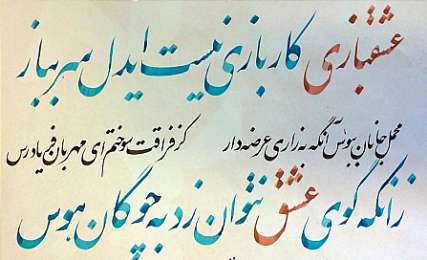 عشقبازی کار بازی نیست ایدل سر بباز
محمل جانان ببوس آنگه به زاری عرضه دار کز فراقت سوختم ای مهربان فریاد رس
زانکه گوی عشق نتوان زد به چوگان هوس